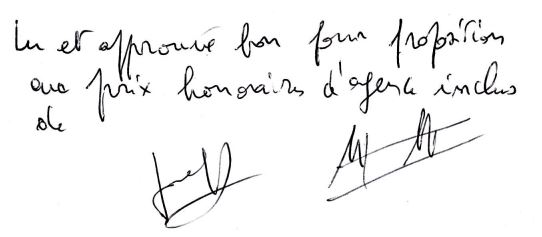 Lu et approuvé bon pour proposition
au prix honoraires d'agence inclus
de